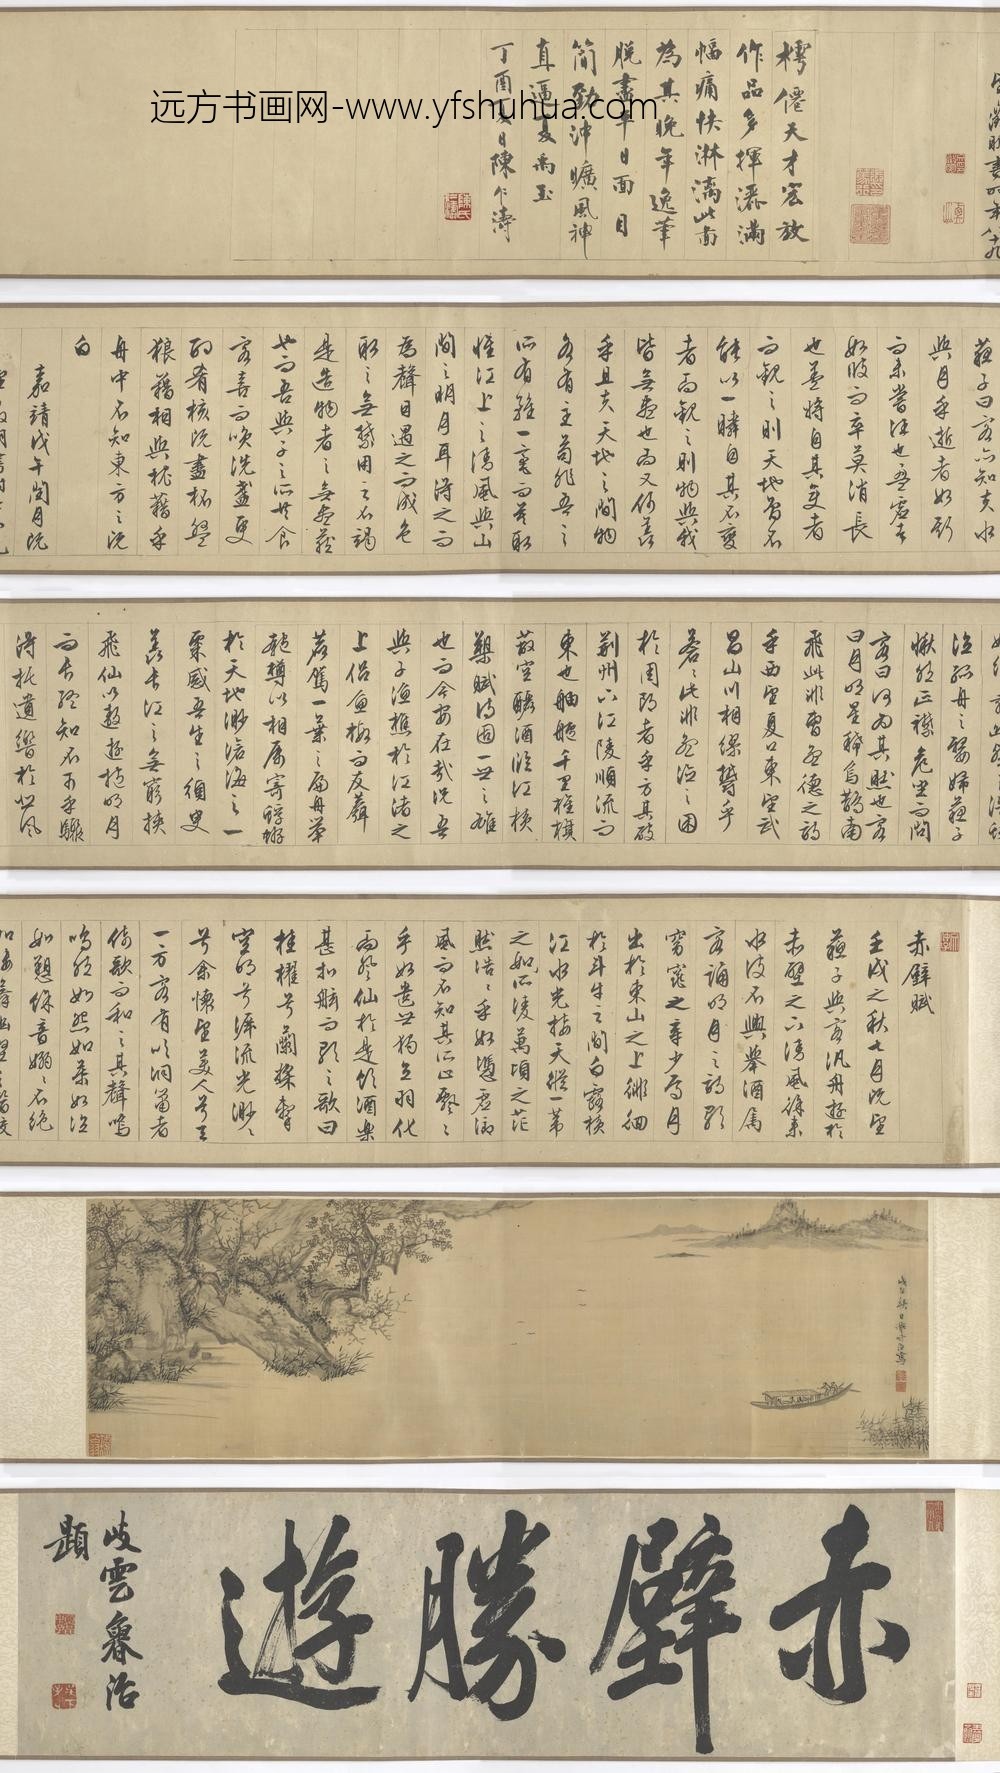 远方书画网-www.yfshuhua.com
赤壁勝遊
岐雲魯治
題
赤壁賦
壬戌之秋七月既望
蘇子與客汎舟遊於
赤壁之下清風徐來
水波不興舉酒屬
客誦明月之詩歌
窈窕之章少焉月
出於東山之上徘徊
於斗牛之間白露橫
江水光接天縱一葦
之所如凌萬頃之茫
然浩浩乎如憑虛御
風而不知其所止飄飄
乎如遺世獨立羽化
而登仙於是飲酒樂
甚扣舷而歌之歌曰
桂櫂兮蘭槳擊
空明兮泝流光渺渺
兮余懷望美人兮天
一方客有吹洞簫者
倚歌而和之其聲嗚
嗚然如怨如慕如泣
如愬餘音嫋嫋不絕
泣孤舟之嫠婦蘇子
愀然正襟危坐而問
客曰何為其然也客
曰月明星稀烏鵲南
飛此非曹孟德之詩
乎西望夏口東望武
昌山川相繆鬱乎
蒼蒼此非孟德之困
於周郎者乎方其破
荊州下江陵順流而
東也舳艫千里旌旗
蔽空釃酒臨江橫
槊賦詩固一世之雄
也而今安在哉況吾
與子漁樵於江渚之
上侶魚蝦而友麋
鹿駕一葉之扁舟舉
匏樽以相屬寄蜉蝣
於天地渺滄海之一
粟感吾生之須臾
羨長江之無窮挾
飛仙以遨遊抱明月
而長終知不可乎驟
得托遺響於悲風
蘇子曰客亦知夫水
與月乎逝者如斯
而未嘗往也盈虛者
如彼而卒莫消長
也蓋將自其變者
而觀之則天地曾不
能以一瞬自其不變
者而觀之則物與我
皆無盡也而又何羨
乎且夫天地之間物
各有主苟非吾之
所有雖一毫而莫取
惟江上之清風與山
間之明月耳得之而
為聲目遇之而成色
取之無禁用之不竭
是造物者之無盡藏
也而吾與子之所共食
客喜而笑洗盞更
酌肴核既盡杯盤
狼藉相與枕藉乎
舟中不知東方之既
白
嘉靖戊午閏月既
樗僊天才宏放
作品多揮灑滿
幅痛快淋漓此卷
為其晚年逸筆
脫盡平日面目
簡勁沖曠風神
直逼夏禹玉
丁酉夏日陳仁濤